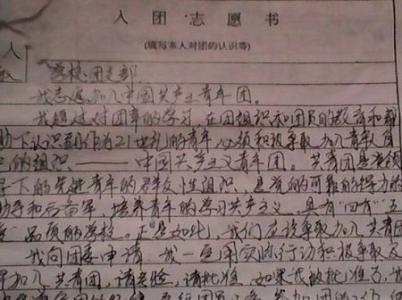 入团志愿书
(填写本人对团的认识等)
入
学校团支部
我志愿加入中国共产主义青年团。
我通过对团章的学习,在团组织和团员的教育和帮
助下认识到作为21世纪的青年必须积极争取加入青年自
己的组织——中国共产主义青年团。共青团是党领
导下的先进青年的群众性组织,是党的可靠的得力的
助手和后备军,培养青年的学习共产主义,具有“四有”五
品质的学校。正是如此,我们应该争取加入共青团
我向团委申请:我一定用实际行动积极争取及
加入共青团,请考验,请批准。如果我被批准了,我